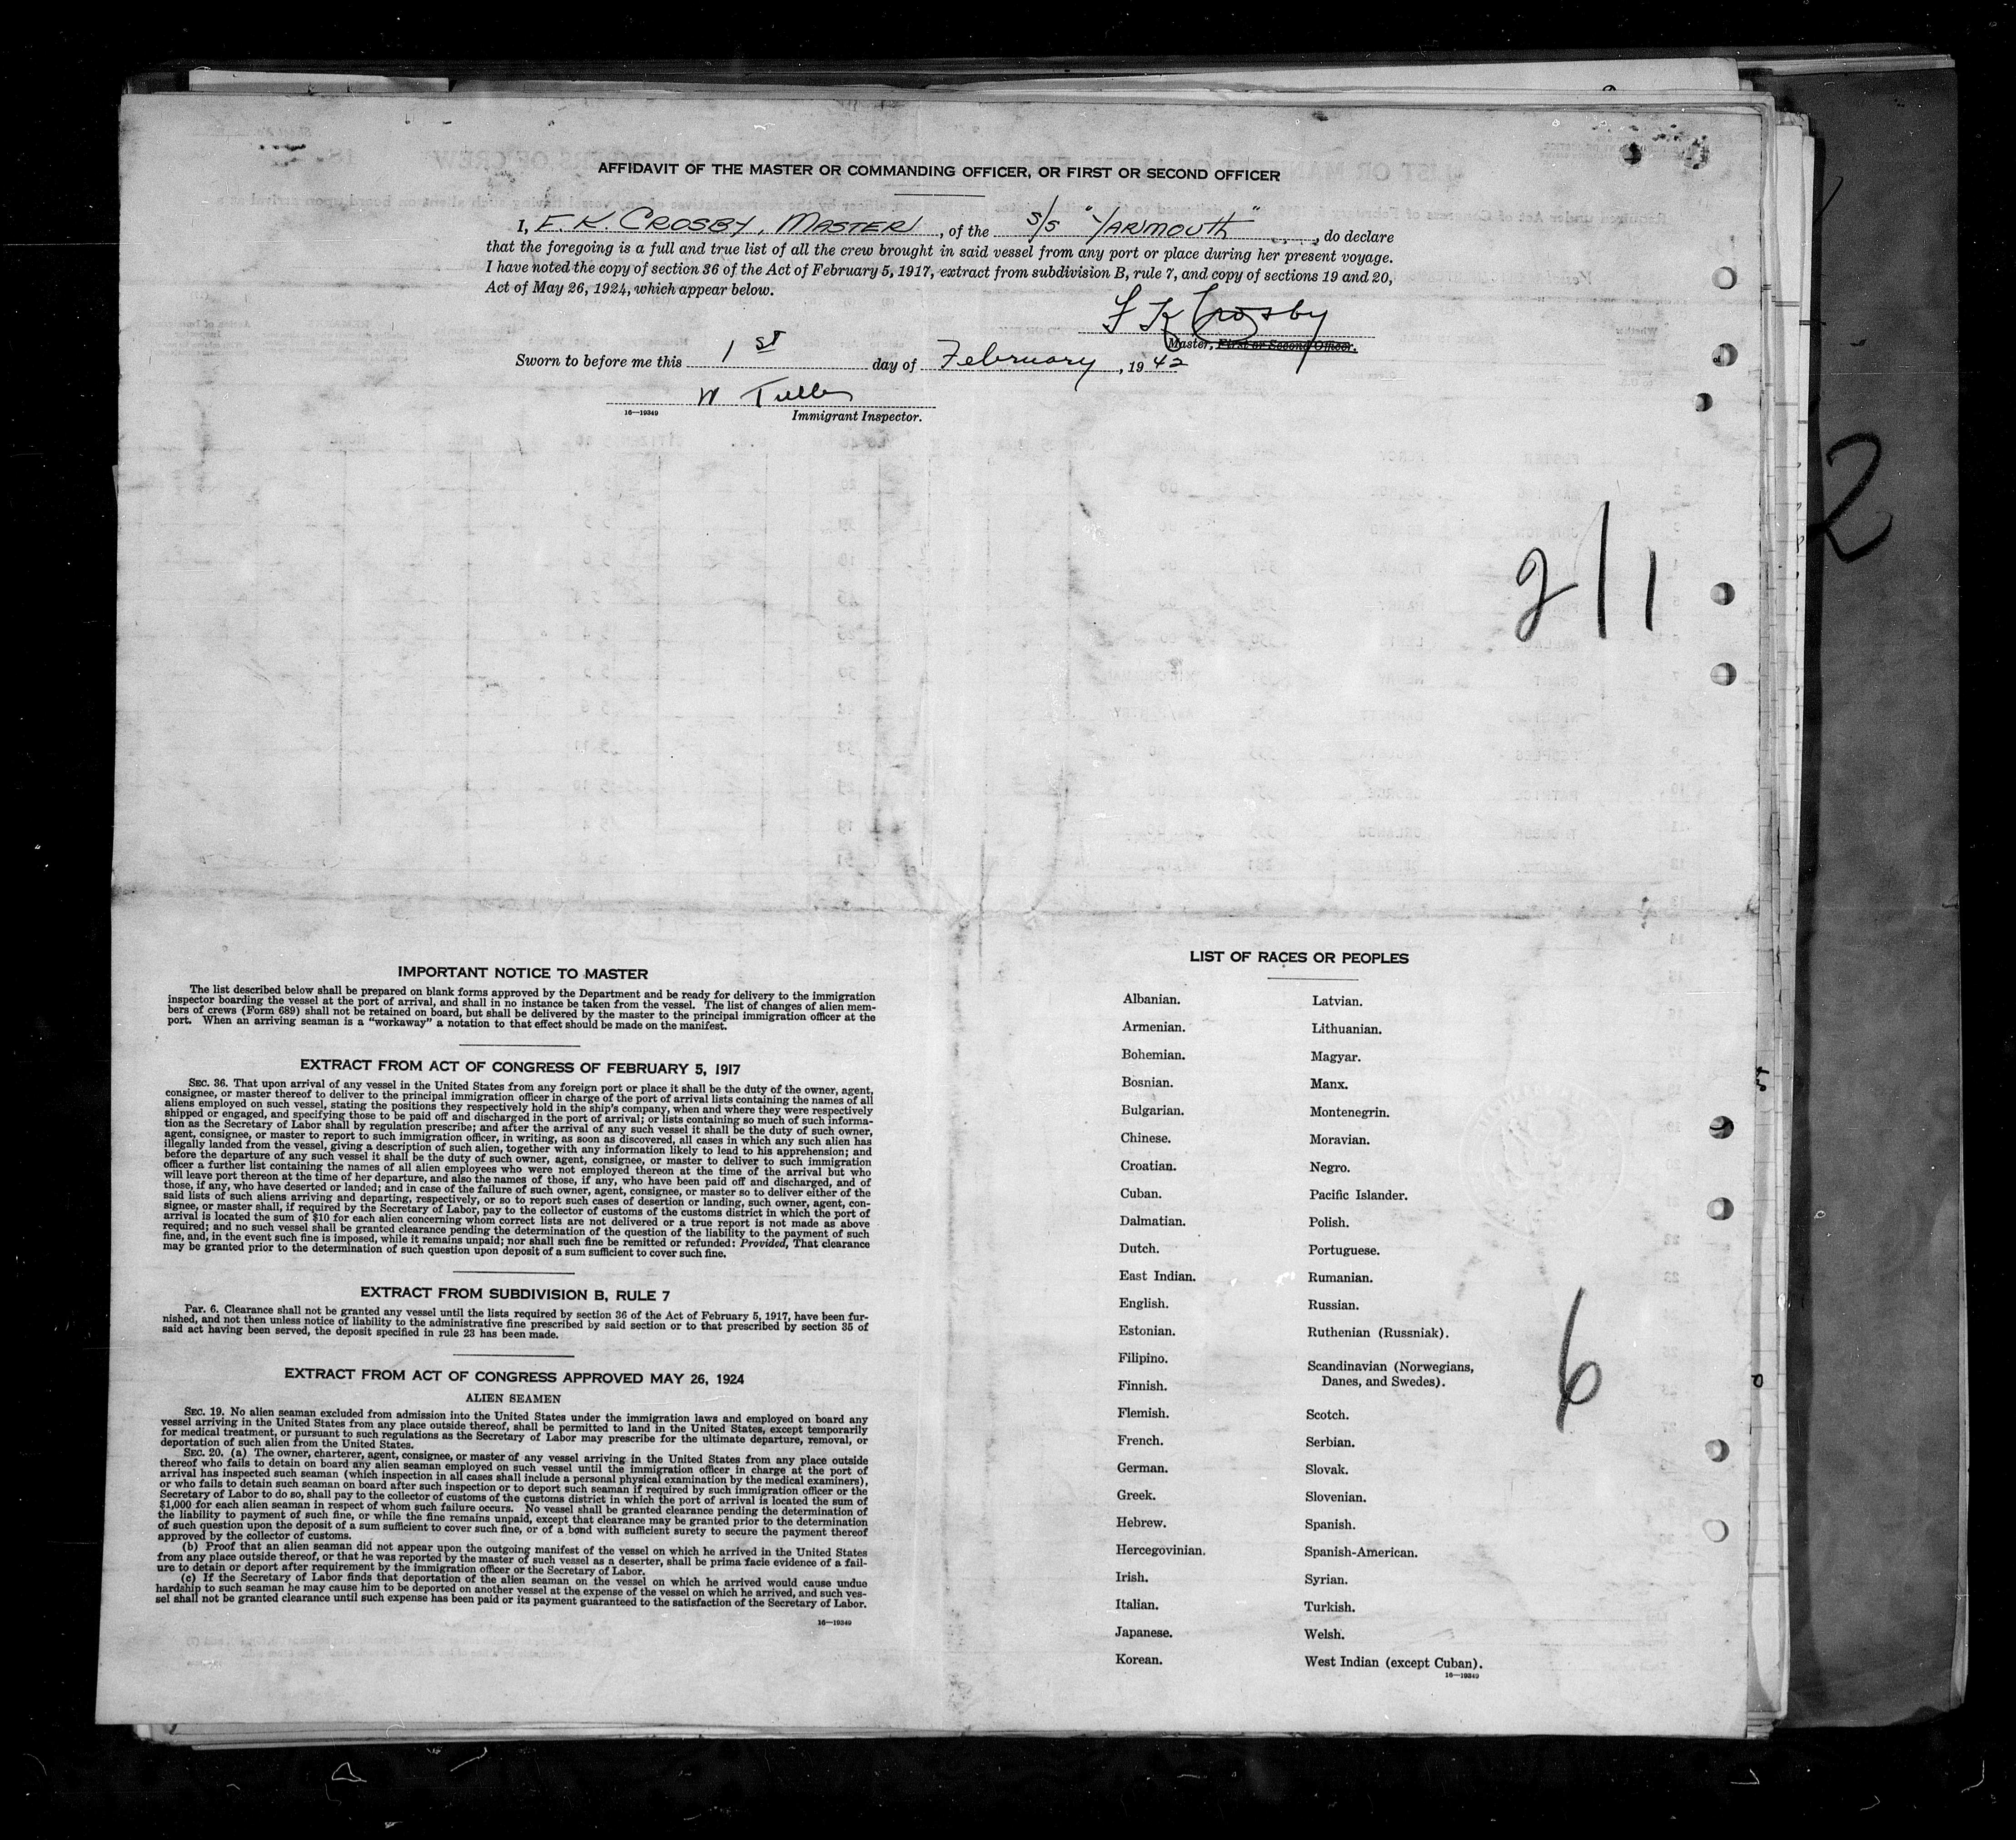 AFFIDAVIT OF THE MASTER OR COMMANDING OFFICER, OR FIRST OR SECOND OFFICER
I, E. K. CROSBY, MASTER, of the S/S "YARMOUTH", do declare
that the foregoing is a full and true list of all the crew brought in said vessel from any port or place during her present voyage.
I have noted the copy of section 36 of the Act of February 5, 1917, extract from subdivision B, rule 7, and copy of sections 19 and 20,
Act of May 26, 1924, which appear below.
K Crosby
Master, First or Second Officer.
Sworn to before me this 1st day of February, 1942
W
16—19349 Immigrant Inspector.
2/1
2
IMPORTANT NOTICE TO MASTER
The list described below shall be prepared on blank forms approved by the Department and be ready for delivery to the immigration
inspector boarding the vessel at the port of arrival, and shall in no instance be taken from the vessel. The list of changes of alien mem-
bers of crews (Form 689) shall not be retained on board, but shall be delivered by the master to the principal immigration officer at the
port. When an arriving seaman is a "workaway" a notation to that effect should be made on the manifest.
EXTRACT FROM ACT OF CONGRESS OF FEBRUARY 5, 1917
SEC. 36. That upon arrival of any vessel in the United States from any foreign port or place it shall be the duty of the owner, agent,
consignee, or master thereof to deliver to the principal immigration officer in charge of the port of arrival lists containing the names of all
aliens employed on such vessel, stating the positions they respectively hold in the ship's company, when and where they were respectively
shipped or engaged, and specifying those to be paid off and discharged in the port of arrival; or lists containing so much of such informa-
tion as the Secretary of Labor shall by regulation prescribe; and after the arrival of any such vessel it shall be the duty of such owner,
agent, consignee, or master to report to such immigration officer, in writing, as soon as discovered, all cases in which any such alien has
illegally landed from the vessel, giving a description of such alien, together with any information likely to lead to his apprehension; and
before the departure of any such vessel it shall be the duty of such owner, agent, consignee, or master to deliver to such immigration
officer a further list containing the names of all alien employees who were not employed thereon at the time of the arrival but who
will leave port thereon at the time of her departure, and also the names of those, if any, who have been paid off and discharged, and of
those, if any, who have deserted or landed; and in case of the failure of such owner, agent, consignee, or master so to deliver either of the
said lists of such aliens arriving and departing, respectively, or so to report such cases of desertion or landing, such owner, agent, con-
signee, or master shall, if required by the Secretary of Labor, pay to the collector of customs of the customs district in which the port of
arrival is located the sum of $10 for each alien concerning whom correct lists are not delivered or a true report is not made as above
required; and no such vessel shall be granted clearance pending the determination of the question of the liability to the payment of such
fine, and, in the event such fine is imposed, while it remains unpaid; nor shall such fine be remitted or refunded: Provided, That clearance
may be granted prior to the determination of such question upon deposit of a sum sufficient to cover such fine.
EXTRACT FROM SUBDIVISION B, RULE 7
Par. 6. Clearance shall not be granted any vessel until the lists required by section 36 of the Act of February 5, 1917, have been fur-
nished, and not then unless notice of liability to the administrative fine prescribed by said section or to that prescribed by section 35 of
said act having been served, the deposit specified in rule 23 has been made.
EXTRACT FROM ACT OF CONGRESS APPROVED MAY 26, 1924
ALIEN SEAMEN
SEC. 19. No alien seaman excluded from admission into the United States under the immigration laws and employed on board any
vessel arriving in the United States from any place outside thereof, shall be permitted to land in the United States, except temporarily
for medical treatment, or pursuant to such regulations as the Secretary of Labor may prescribe for the ultimate departure, removal, or
deportation of such alien from the United States.
SEC. 20. (a) The owner, charterer, agent, consignee, or master of any vessel arriving in the United States from any place outside
thereof who fails to detain on board any alien seaman employed on such vessel until the immigration officer in charge at the port of
arrival has inspected such seaman (which inspection in all cases shall include a personal physical examination by the medical examiners),
or who fails to detain such seaman on board after such inspection or to deport such seaman if required by such immigration officer or the
Secretary of Labor to do so, shall pay to the collector of customs of the customs district in which the port of arrival is located the sum of
$1,000 for each alien seaman in respect of whom such failure occurs. No vessel shall be granted clearance pending the determination of
the liability to payment of such fine, or while the fine remains unpaid, except that clearance may be granted prior to the determination
of such question upon the deposit of a sum sufficient to cover such fine, or of a bond with sufficient surety to secure the payment thereof
approved by the collector of customs.
(b) Proof that an alien seaman did not appear upon the outgoing manifest of the vessel on which he arrived in the United States
from any place outside thereof, or that he was reported by the master of such vessel as a deserter, shall be prima facie evidence of a fail-
ure to detain or deport after requirement by the immigration officer or the Secretary of Labor.
(c) If the Secretary of Labor finds that deportation of the alien seaman on the vessel on which he arrived would cause undue
hardship to such seaman he may cause him to be deported on another vessel at the expense of the vessel on which he arrived, and such ves-
sel shall not be granted clearance until such expense has been paid or its payment guaranteed to the satisfaction of the Secretary of Labor.
16—19349
LIST OF RACES OR PEOPLES
Albanian. Latvian.
Armenian. Lithuanian.
Bohemian. Magyar.
Bosnian. Manx.
Bulgarian. Montenegrin.
Chinese. Moravian.
Croatian. Negro.
Cuban. Pacific Islander.
Dalmatian. Polish.
Dutch. Portuguese.
East Indian. Rumanian.
English. Russian.
Estonian. Ruthenian (Russniak).
Filipino. Scandinavian (Norwegians,
Danes, and Swedes).
Finnish.
Flemish. Scotch.
French. Serbian.
German. Slovak.
Greek. Slovenian.
Hebrew. Spanish.
Hercegovinian. Spanish-American.
Irish. Syrian.
Italian. Turkish.
Japanese. Welsh.
Korean. West Indian (except Cuban).
16—19349
6